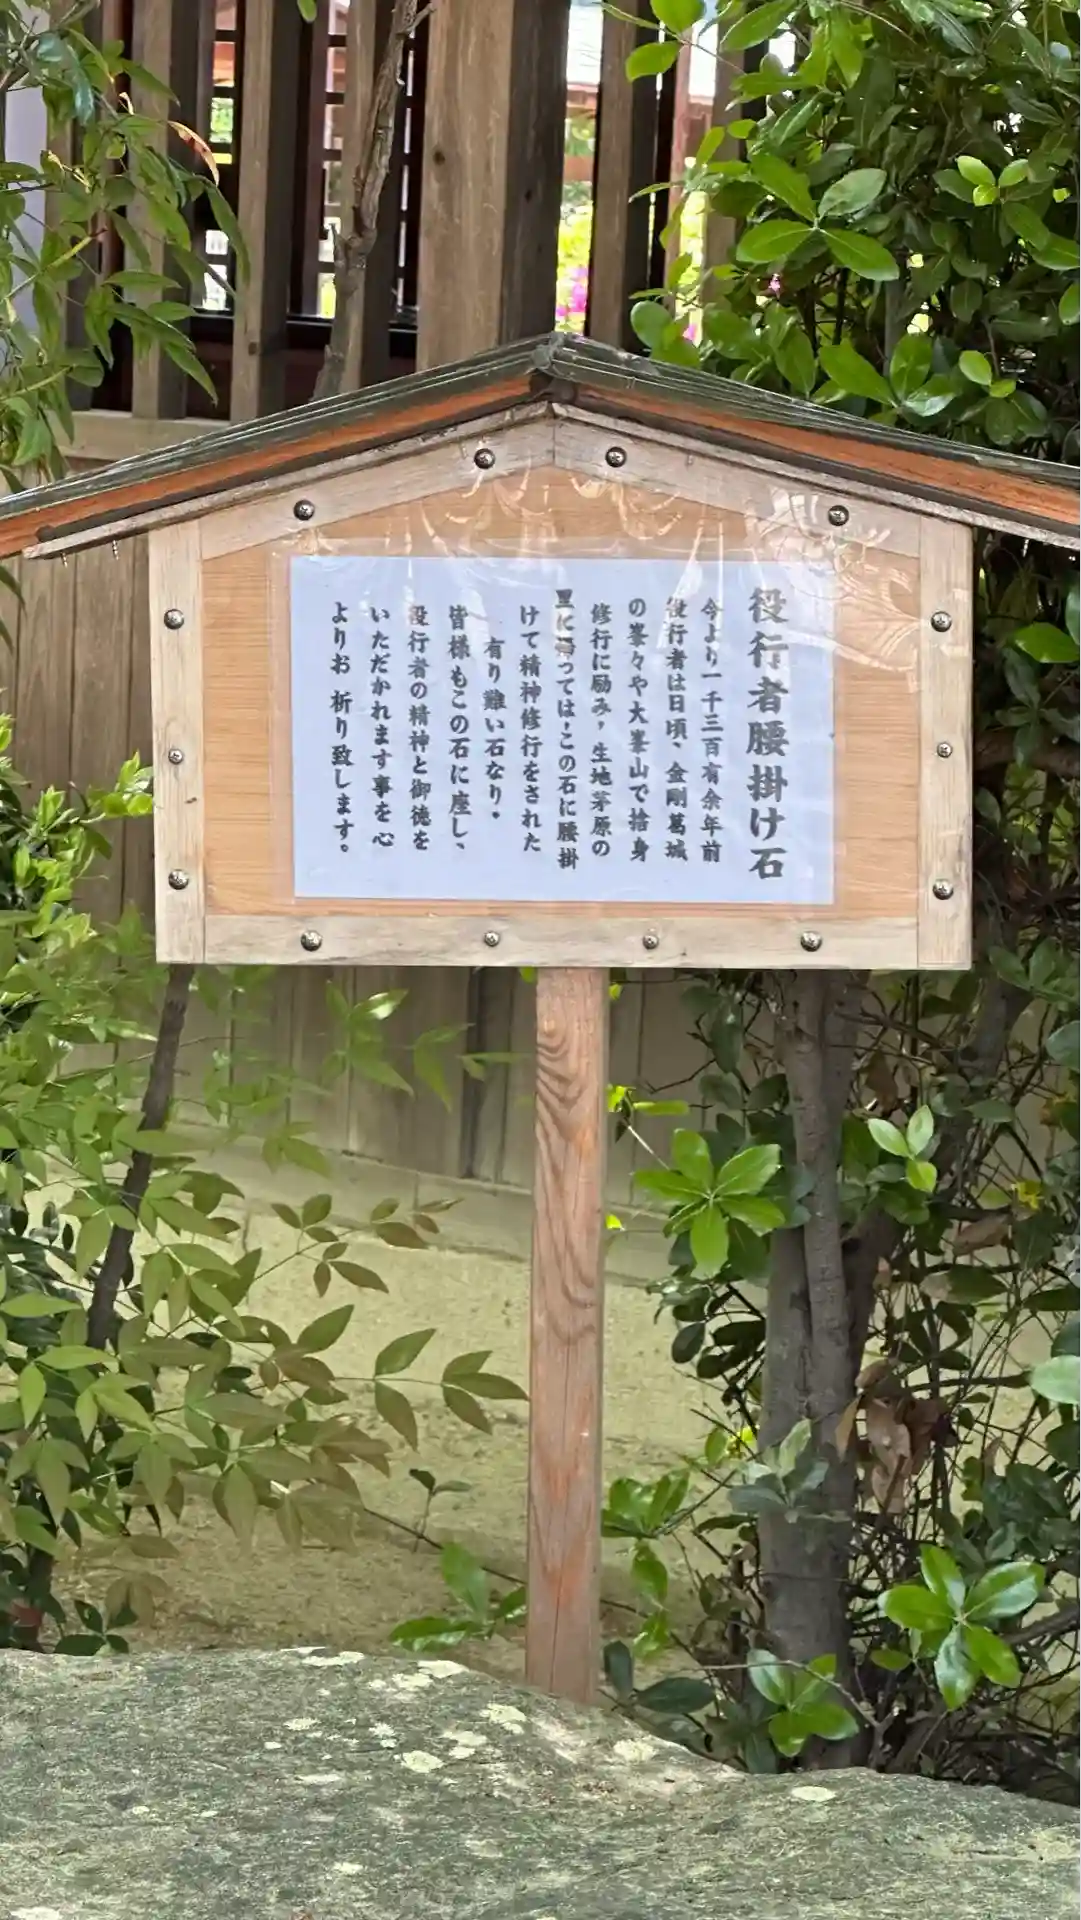 役行者腰掛け石
今より一千三百有余年前
役行者は日頃、金剛葛城
の峯々や大峯山で捨身
修行に励み,生地茅原の
里に帰っては,この石に腰掛
けて精神修行をされた
有り難い石なり.
皆様もこの石に座し、
役行者の精神と御徳を
いただかれます事を心
よりお祈り致します。